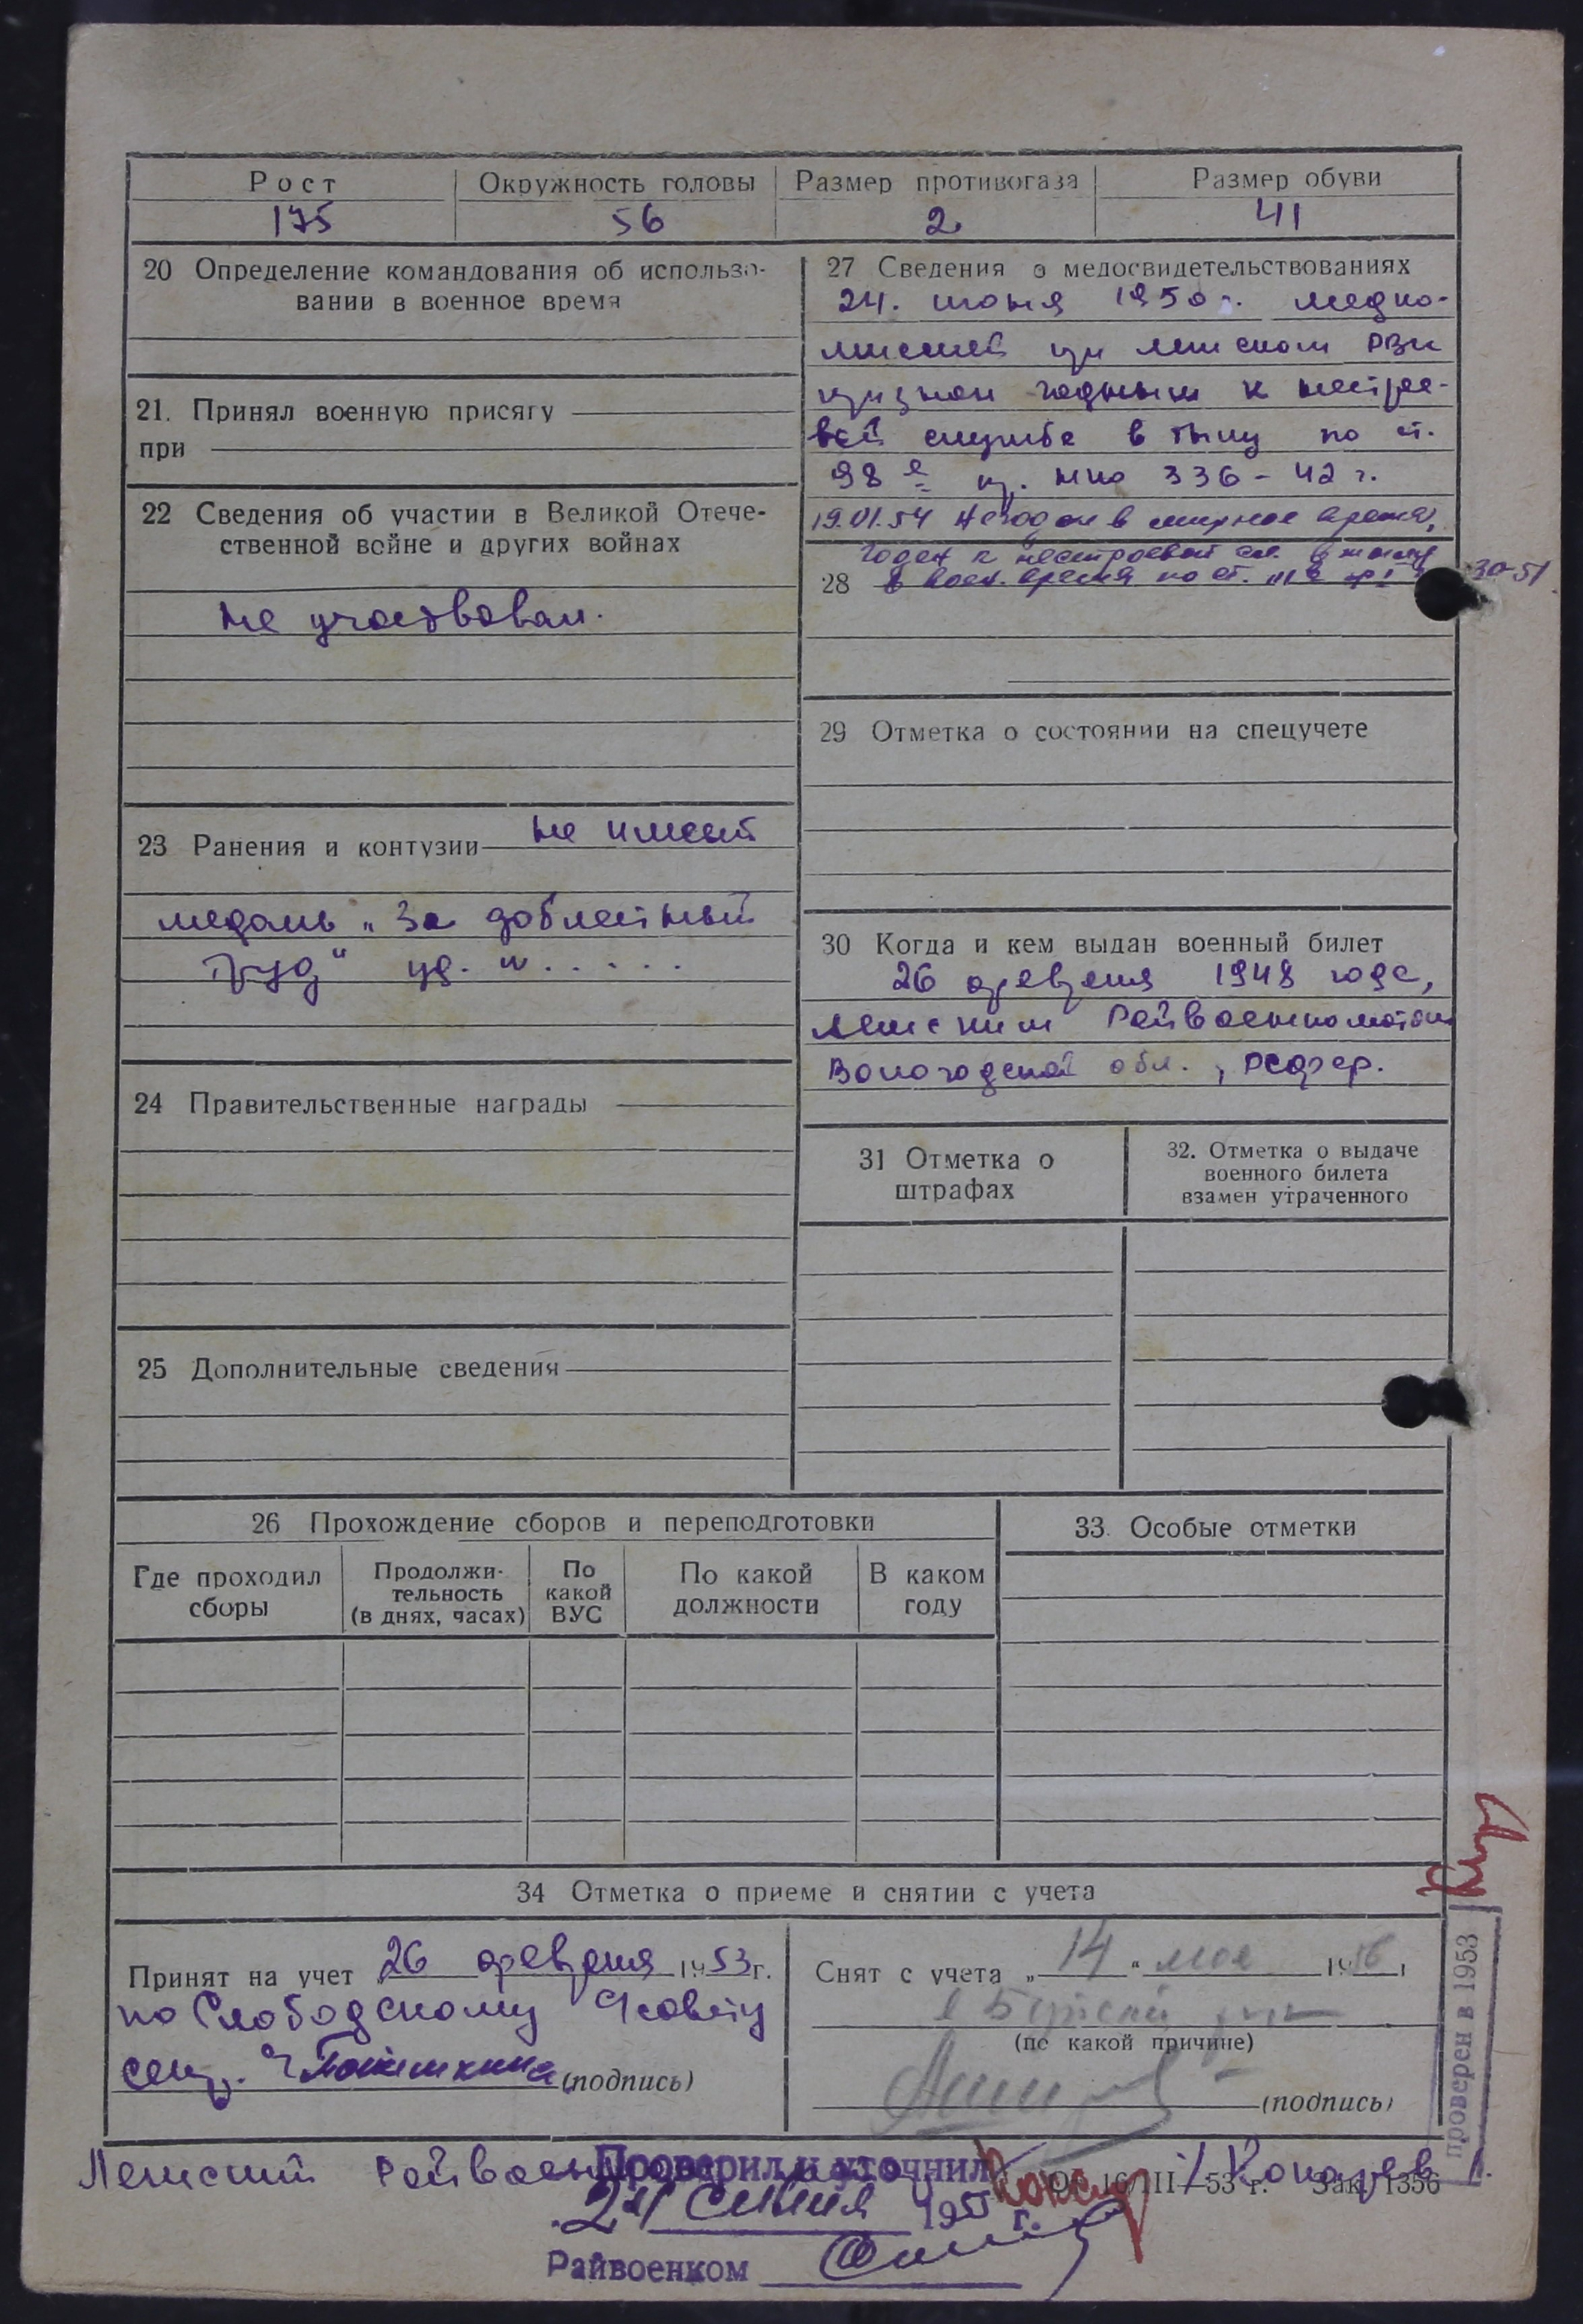 Рост
Окружность головы
Размер противогаза
Размер обуви
175
56
2
41
20 Определение командования об использо-
вании в военное время
21. Принял военную присягу
при
22 Сведения об участии в Великой Отече-
ственной войне и других войнах
не участвовал.
23 Ранения и контузии не имеет
медаль „За доблестный
труд“ уд. №.....
24 Правительственные награды
25 Дополнительные сведения
27 Сведения о медосвидетельствованиях
24. июня 1950 г. медко-
миссией при Лешском РВК
признан годным к нестрое-
вой службе в тылу по ст.
98 е пр. НКО 336-42 г.
19.01.54 Не годен в мирное время,
годен к нестроевой сл. в тылу
28 в воен. время по ст.
30-51
29 Отметка о состоянии на спецучете
30 Когда и кем выдан военный билет
26 февраля 1948 года,
Лешским Райвоенкоматом
Вологодской обл., РСФСР.
31 Отметка о
штрафах
32. Отметка о выдаче
военного билета
взамен утраченного
26 Прохождение сборов и переподготовки
Где проходил
сборы
Продолжи-
тельность
(в днях, часах)
По
какой
ВУС
По какой
должности
В каком
году
33. Особые отметки
34 Отметка о приеме и снятии с учета
Принят на учет 26 февраля 1953 г.
по Слободскому с/совету
секр.
(подпись)
Снят с учета „14“ мая 1956 г
(по какой причине)
(подпись)
проверен в 1953
Лешский Райвоенком
Проверил и уточнил
16/III—53 г. Зак. 1356
24 1955 г.
Райвоенком